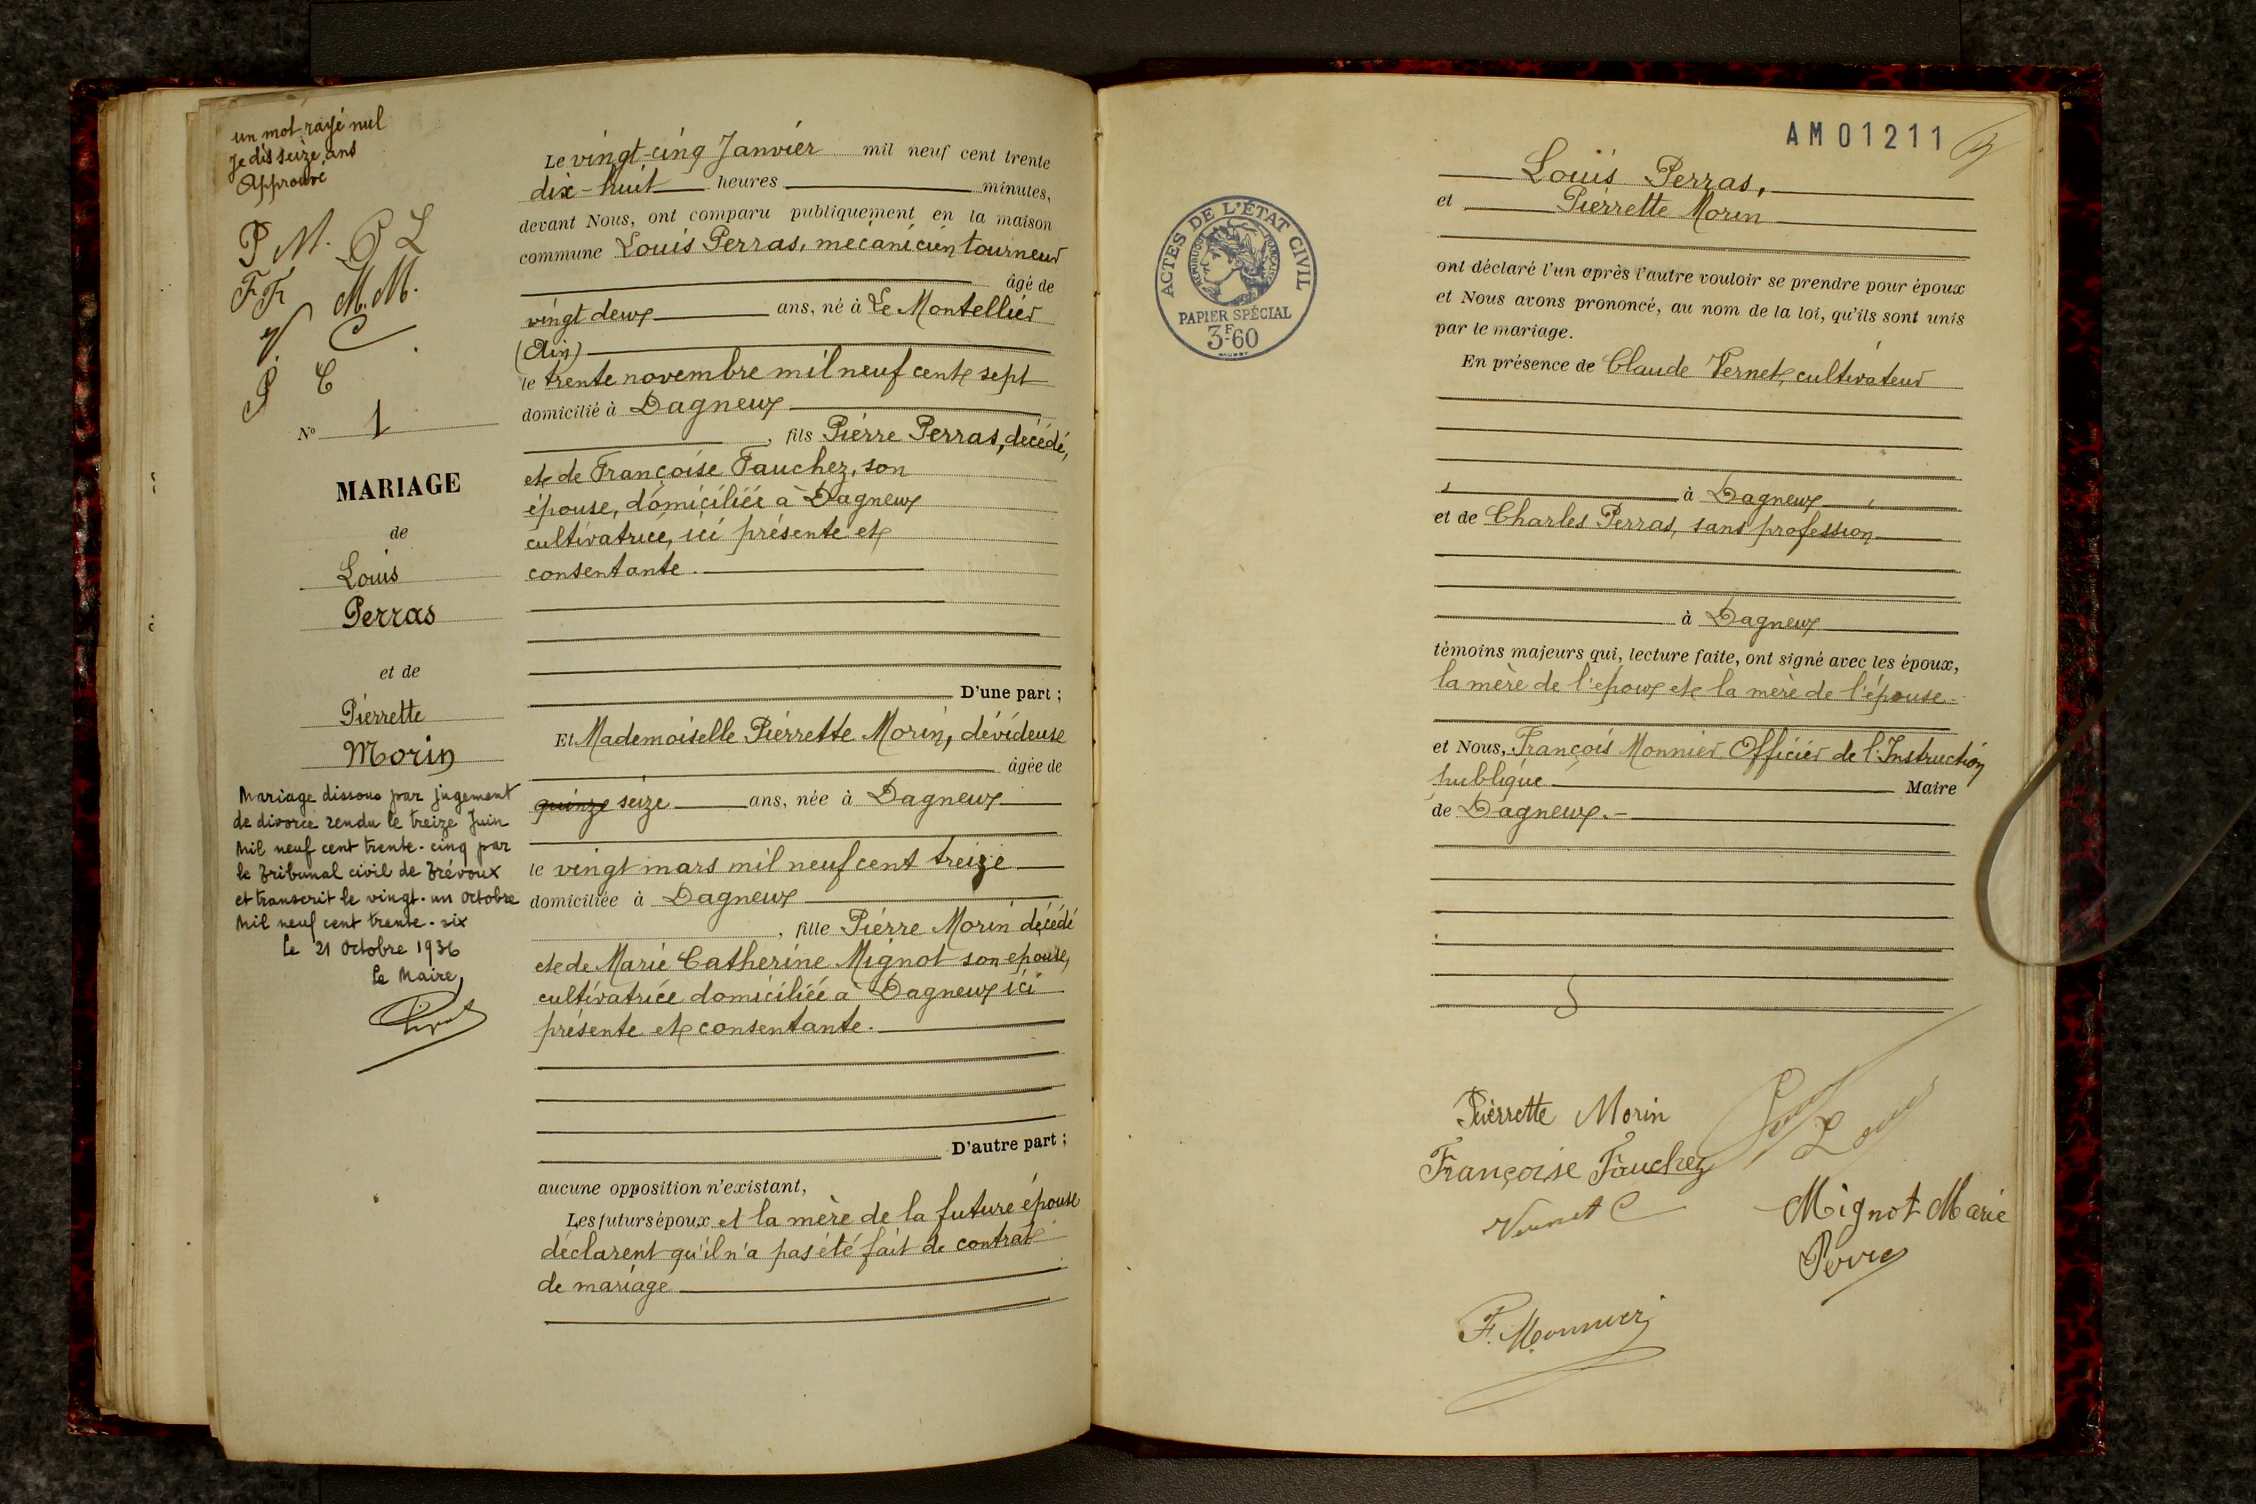 un mot rayé nul
Je dis seize ans
Approuvé
P M. P L
F F. M. M.
C
P. C
N° 1
MARIAGE
de
Louis
Perras
et de
Pierrette
Morin
Mariage dissous par jugement
de divorce rendu le treize Juin
Mil neuf cent trente-cinq par
le Tribunal civil de Trévoux
et transcrit le vingt-un Octobre
Mil neuf cent trente-six
Le 21 Octobre 1936
Le Maire,
Le vingt-cinq Janvier mil neuf cent trente
dix-huit heures minutes,
devant Nous, ont comparu publiquement en la maison
commune Louis Perras, mécanicien tourneur
âgé de
vingt deux ans, né à Le Montellier
(Ain)
le trente novembre mil neuf cent sept
domicilié à Dagneux
, fils Pierre Perras, décédé,
et de Françoise Fauchez, son
épouse, domiciliée à Dagneux
cultivatrice, ici présente et
consentante.
D'une part ;
Et Mademoiselle Pierrette Morin, dévideuse
âgée de
quinze seize ans, née à Dagneux
le vingt mars mil neuf cent treize
domiciliée à Dagneux
, fille Pierre Morin décédé
et de Marie Catherine Mignot son epouse,
cultivatrice domiciliée à Dagneux ici
présente et consentante.
D'autre part ;
aucune opposition n'existant,
Les futurs époux et la mère de la future épouse
déclarent qu'il n'a pas été fait de contrat
de mariage
AM01211
ACTES DE L'ÉTAT CIVIL
RÉPUBLIQUE FRANÇAISE
PAPIER SPÉCIAL
3F.60
Louis Perras,
et Pierrette Morin
ont déclaré l'un après l'autre vouloir se prendre pour époux
et Nous avons prononcé, au nom de la loi, qu'ils sont unis
par le mariage.
En présence de Claude Vernet, cultivateur
à Dagneux
et de Charles Perras, sans profession
à Dagneux
témoins majeurs qui, lecture faite, ont signé avec les époux,
la mère de l'époux et la mère de l'épouse.
et Nous, François Monnier Officier de l'Instruction
publique Maire
de Dagneux.
Pierrette Morin
Françoise Fauchez
Vernet C
Mignot Marie
F. Monnier